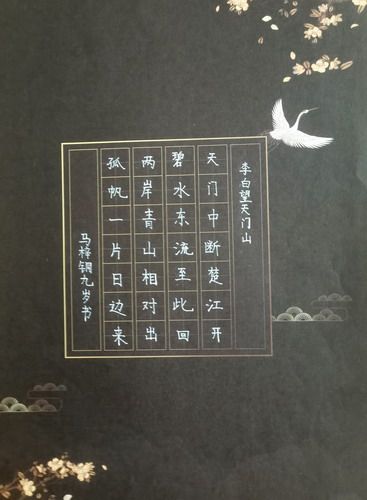 李白望天门山
天门中断楚江开
碧水东流至此回
两岸青山相对出
孤帆一片日边来
马梓铜九岁书